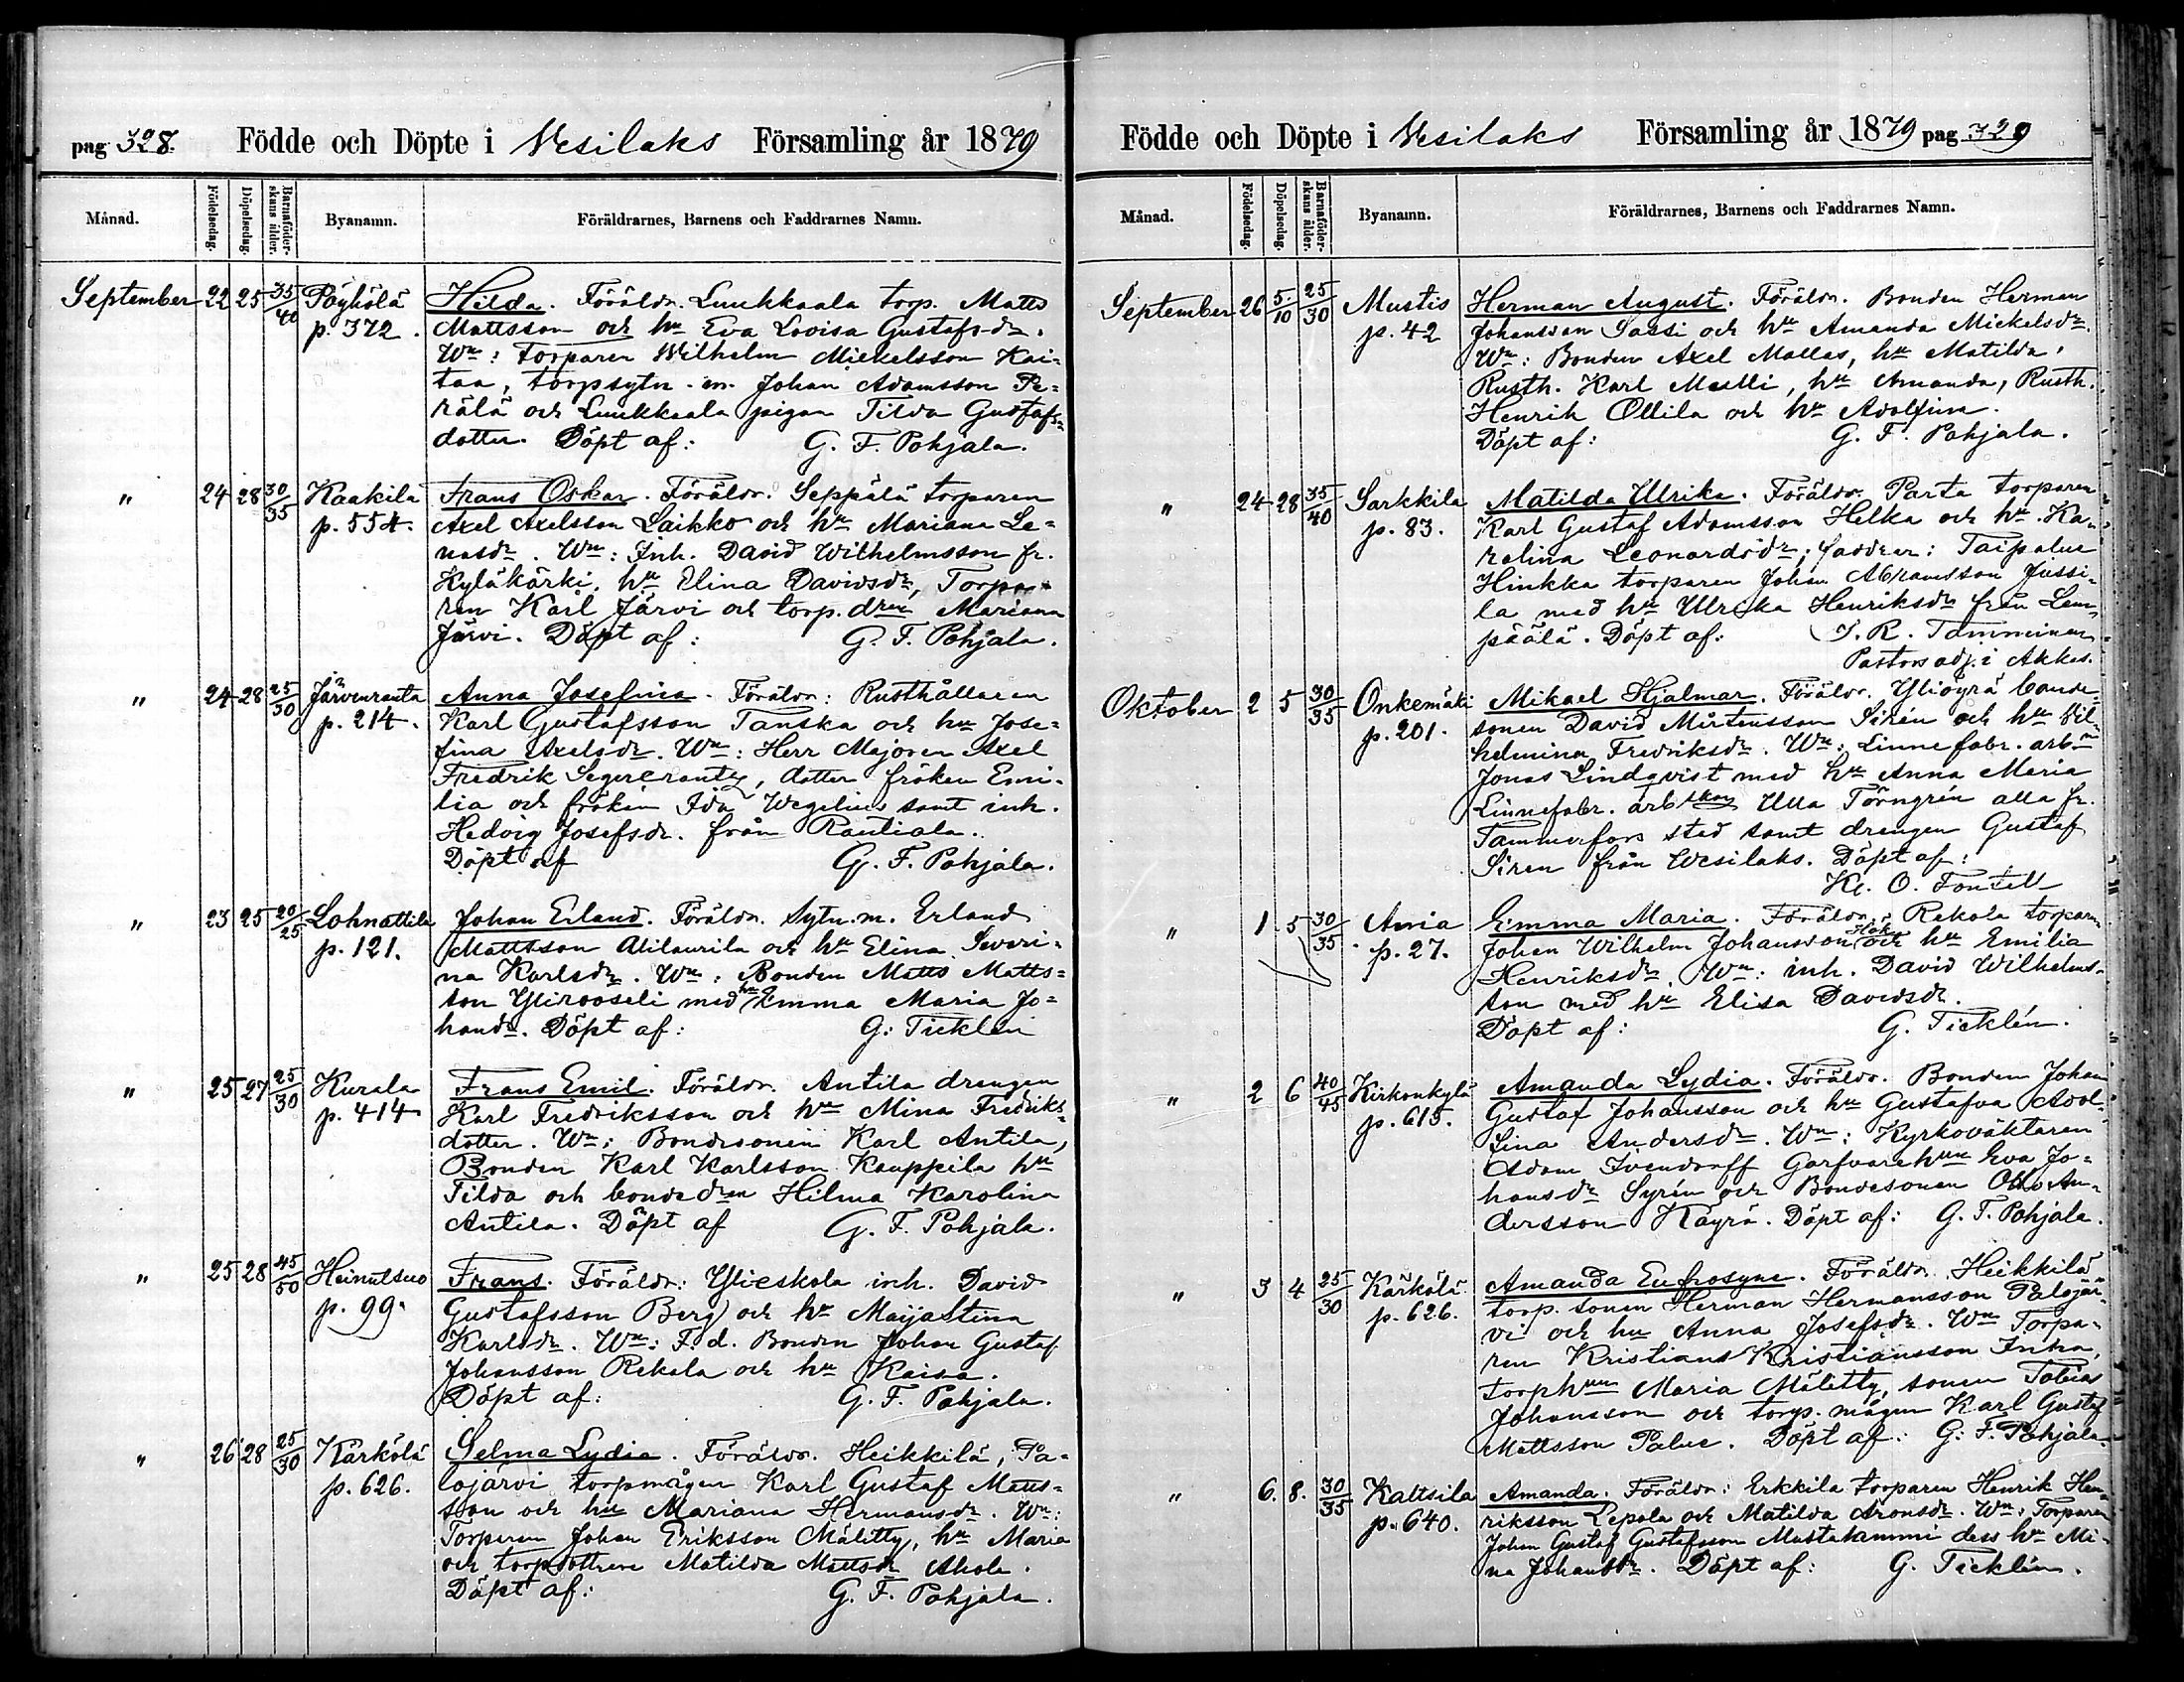 pag 328. Födde och Döpte i Vesilaks Församling år 1879
Månad. Födelsedag. Döpelsedag. Barnaföderskans ålder. Byanamn. Föräldrarnes, Barnens och Faddrarnes Namn.
September 22 25 35/40 Pöyhölä p. 372. Hilda. Föräldr. Luukkaala torp. Matts
Mattsson och hu Eva Lovisa Gustafsdr.
Wn: Torparen Wilhelm Mickelsson Kai-
taa, torpsytn. m. Johan Adamsson Pe-
rälä och Luukkaala pigan Tilda Gustafs-
dotter. Döpt af: G. F. Pohjala.
" 24 28 30/35 Kaakila p. 554. Frans Oskar. Föräldr. Seppälä torparen
Axel Axelsson Laikko och hu Mariana Le-
nasdr. Wn: Inh. David Wilhelmsson fr.
Kyläkärki, hu Elina Davidsdr, Torpa-
ren Karl Järvi och torp. dren Mariana
Järvi. Döpt af: G. F. Pohjala.
" 24 28 25/30 Järvenranta p. 214. Anna Josefina. Föräldr: Rusthållaren
Karl Gustafsson Tanska och hu Jose-
fina Axelsdr. Wn: Herr Majoren Axel
Fredrik Segercrantz, dotter fröken Emi-
lia och fröken Ida Wegelius samt inh.
Hedvig Josefsdr. från Rautiala.
Döpt af G. F. Pohjala.
" 23 25 20/25 Lahnattila p. 121. Johan Erland. Föräldr. Sytn. m. Erland
Mattsson Alilaurila och hu Elina Severi-
na Karlsdr. Wn: Bonden Matts Matts-
son Ylirooseli med hu Emma Maria Jo-
handr. Döpt af: G. Ticklén
" 25 27 25/30 Kurala p. 414 Frans Emil. Föräldr. Antila drengen
Karl Fredriksson och hu Mina Fredriks-
dotter. Wn: Bondesonen Karl Antila,
Bonden Karl Karlsson Kauppila hu
Tilda och bondedren Hilma Karolina
Antila. Döpt af G. F. Pohjala.
" 25 28 45/50 Heinutsuo p. 99. Frans. Föräldr: Ylieskola inh. David
Gustafsson Berg och hu Maija Stina
Karlsdr. Wn: F. d. Bonden Johan Gustaf
Johansson Rekola och hu Kaisa.
Döpt af: G. F. Pohjala.
" 26 28 25/30 Kärkölä p. 626. Selma Lydia. Föräldr. Heikkilä, Pa-
lojärvi torpmågen Karl Gustaf Matts-
son och hu Mariana Hermansdr. Wn:
Torparen Johan Eriksson Mälitty, hu Maria
och torpdottren Matilda Mattsdr Ahola.
Döpt af: G. F. Pohjala.
Födde och Döpte i Vesilaks Församling år 1879 pag 329
Månad. Födelsedag. Döpelsedag. Barnaföderskans ålder. Byanamn. Föräldrarnes, Barnens och Faddrarnes Namn.
September 26 5/10 25/30 Mustis p. 42 Herman August. Föräldr. Bonden Herman
Johansson Sassi och hu Amanda Mickelsdr.
Wn: Bonden Axel Mallas, hu Matilda,
Rusth. Karl Mselli, hu Amanda, Rusth.
Henrik Ollila och hu Adolfina.
Döpt af: G. F. Pohjala.
" 24 28 35/40 Sarkkila p. 83. Matilda Ulrika. Föräldr. Parta torparen
Karl Gustaf Adamsson Helka och hu Ka-
rolina Leonardsdr; faddrar: Taipalue
Hinkka torparen Johan Abramsson Jussi-
la med hu Ulrika Henriksdr från Lem-
päälä. Döpt af: J. R. Tamminen
Pastors adj. i Akkas.
Oktober 2 5 30/35 Onkemäki p. 201. Mikael Hjalmar. Föräldr. Yliöyrä bonde-
sonen David Mårtensson Sirén och hu Vil-
helmina Fredriksdr. Wn: Linnefabr. arb.
Jonas Lindqvist med hu Anna Maria
Linnefabr. arbskan Ulla Törngrén alla fr.
Tammerfors stad samt drengen Gustaf
Siren från Wesilaks. Döpt af:
K. O. Fontell
" 1 5 30/35 Ania p. 27. Emma Maria. Föräldr. Rekola torparn
Johan Wilhelm Johansson Hök och hu Emilia
Henriksdr. Wn: inh. David Wilhelms-
son med hu Elisa Davidsdr.
Döpt af: G. Ticklén.
" 2 6 40/45 Kirkonkylä p. 615. Amanda Lydia. Föräldr. Bonden Johan
Gustaf Johansson och hu Gustafva Adol-
fina Andersdr. Wn: Kyrkoväktaren
Adam Ivendorff Garfvarehun Eva Jo-
hansdr Syrén och Bondesonen Otto An-
dersson Käyrä. Döpt af: G. F. Pohjala.
" 3 4 25/30 Kärkölä p. 626. Amanda Eufrosyne. Föräldr. Heikkilä
torp. sonen Herman Hermansson Palojär-
vi och hu Anna Josefsdr. Wn Torpa-
ren Kristians Kristiansson Inha,
torphun Maria Mälitty, sonen Tobias
Johansson och torp. mågen Karl Gustaf
Mattsson Palue. Döpt af: G. F. Pohjala.
" 6. 8. 30/35 Kaltsila p. 640. Amanda. Föräldr: Erkkila torparen Henrik Hen-
riksson Lepola och Matilda Aronsdr. Wn: Torparen
Johan Gustaf Gustafsson Mustalammi dess hu Mi-
na Johansdr. Döpt af: G. Ticklén.